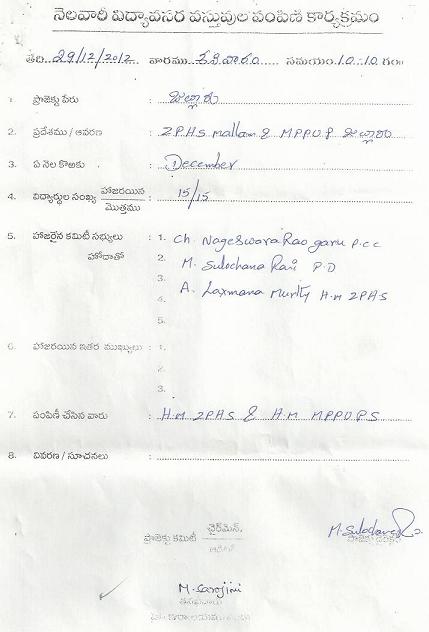 నెలవారీ విద్యావసర వస్తువుల పంపిణి కార్యక్రమం
తేది. 29/12/2012 వారము శనివారం సమయం 10.10 గం
1. ప్రాజెక్టు పేరు :
2. ప్రదేశము / ఆవరణ : Z.P.H.S mallam & MPPUP
3. ఏ నెల కొఱకు : December
4. విద్యార్థుల సంఖ్య హాజరయిన : 15/15
మొత్తము
5. హాజరైన కమిటీ సభ్యులు : 1. Ch. Nageswara Rao garu P.CC
హోదాతో 2. M. Sulochana Rani P.D
3. A. Laxmana Murthy H.M ZPHS
4.
5.
6. హాజరయిన ఇతర ముఖ్యులు : 1.
2.
3.
7. పంపిణీ చేసిన వారు : H.M ZPHS & H.M MPPUPS
8. వివరణ / సూచనలు :
ఛైర్మెన్.
ప్రాజెక్టు కమిటీ
M. Sarojini